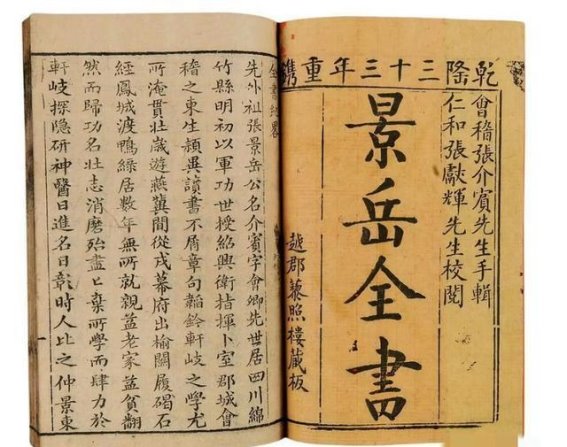 乾隆三十三年重鐫
會稽張介賓先生手輯
仁和張獻輝先生校閱
景岳全書
越郡藜照樓藏板
全書紀畧
先外祖張景岳公名介賓字會卿先世居四川綿
竹縣明初以軍功世授紹興衛指揮卜室郡城會
稽之東生頴異讀書不屑章句韜鈐軒岐之學尤
所淹貫壯歲遊燕冀間從戎幕府出榆關履碣石
經鳳城渡鴨綠居數年無所就親益老家益貧翻
然而歸功名壯志消磨殆盡棄所學而肆力於
軒岐探隱研神醫日進名日彰時人比之仲景東